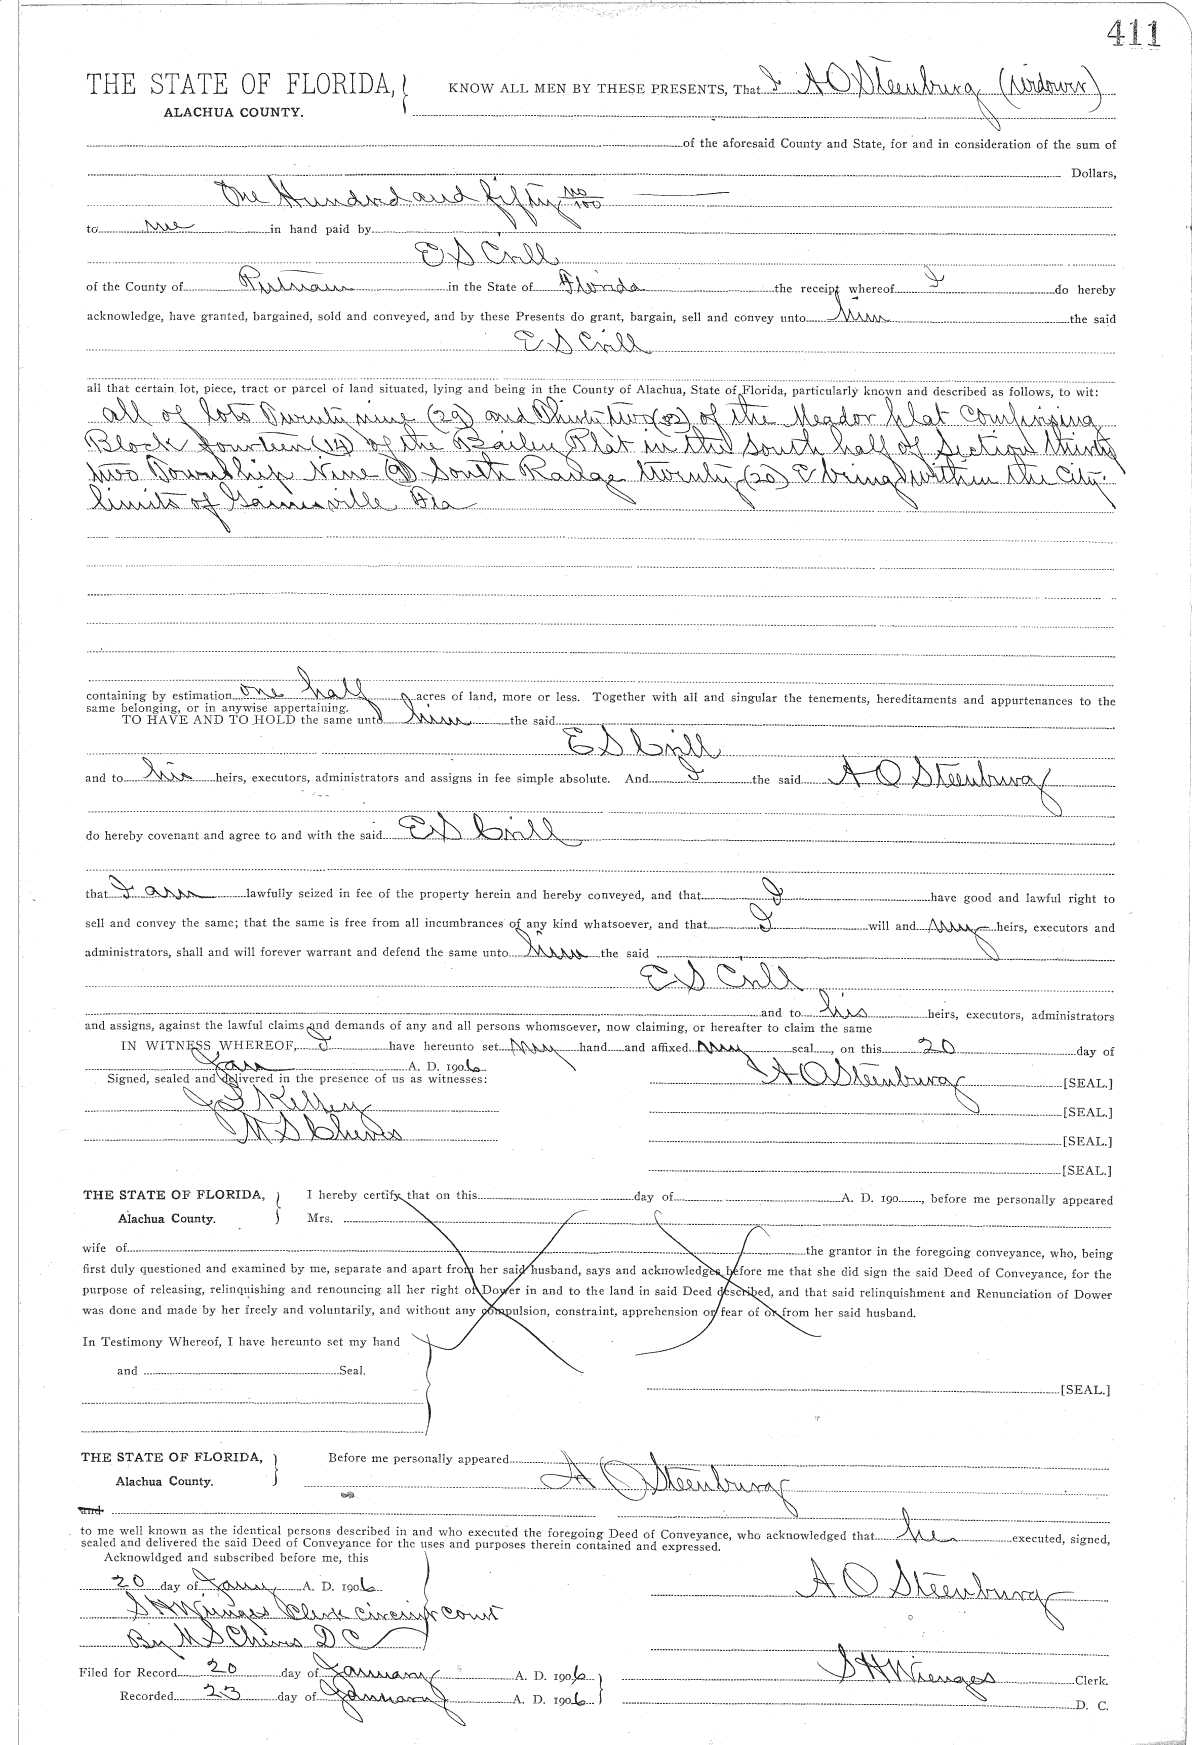 411
THE STATE OF FLORIDA, KNOW ALL MEN BY THESE PRESENTS, That I A O Steenburg (widower)
ALACHUA COUNTY.
of the aforesaid County and State, for and in consideration of the sum of
Dollars,
One Hundred and fifty no/100
to me in hand paid by
E S Crill
of the County of Putnam in the State of Florida the receipt whereof I do hereby
acknowledge, have granted, bargained, sold and conveyed, and by these Presents do grant, bargain, sell and convey unto him the said
E S Crill
all that certain lot, piece, tract or parcel of land situated, lying and being in the County of Alachua, State of Florida, particularly known and described as follows, to wit:
all of lots Twenty nine (29) and Thirty two (32) of the Meador plat Comprising
Block fourteen (14) of the Bailey Plat in the South half of Section thirty
two Township Nine (9) South Range twenty (20) E being within the City
limits of Gainesville Fla
containing by estimation one half acres of land, more or less. Together with all and singular the tenements, hereditaments and appurtenances to the
same belonging, or in anywise appertaining.
TO HAVE AND TO HOLD the same unto him the said
E S Crill
and to his heirs, executors, administrators and assigns in fee simple absolute. And I the said A O Steenburg
do hereby covenant and agree to and with the said E S Crill
that I am lawfully seized in fee of the property herein and hereby conveyed, and that I have good and lawful right to
sell and convey the same; that the same is free from all incumbrances of any kind whatsoever, and that I will and my heirs, executors and
administrators, shall and will forever warrant and defend the same unto him the said
E S Crill
and to his heirs, executors, administrators
and assigns, against the lawful claims and demands of any and all persons whomsoever, now claiming, or hereafter to claim the same
IN WITNESS WHEREOF, I have hereunto set my hand and affixed my seal, on this 20 day of
Jan A. D. 1906
Signed, sealed and delivered in the presence of us as witnesses: A O Steenburg [SEAL.]
J S Kelley [SEAL.]
M S Cheves [SEAL.]
[SEAL.]
THE STATE OF FLORIDA, I hereby certify that on this day of A. D. 190 , before me personally appeared
Alachua County. Mrs.
wife of the grantor in the foregoing conveyance, who, being
first duly questioned and examined by me, separate and apart from her said husband, says and acknowledges before me that she did sign the said Deed of Conveyance, for the
purpose of releasing, relinquishing and renouncing all her right of Dower in and to the land in said Deed described, and that said relinquishment and Renunciation of Dower
was done and made by her freely and voluntarily, and without any compulsion, constraint, apprehension or fear of or from her said husband.
In Testimony Whereof, I have hereunto set my hand
and Seal.
[SEAL.]
THE STATE OF FLORIDA, Before me personally appeared
Alachua County. A O Steenburg
and
to me well known as the identical persons described in and who executed the foregoing Deed of Conveyance, who acknowledged that he executed, signed,
sealed and delivered the said Deed of Conveyance for the uses and purposes therein contained and expressed.
Acknowldged and subscribed before me, this
20 day of Jany A. D. 1906 A O Steenburg
S H Wienges Clerk Circuit Court
By M S Cheves D C
Filed for Record 20 day of January A. D. 1906 S H Wienges Clerk.
Recorded 23 day of January A. D. 1906 D. C.